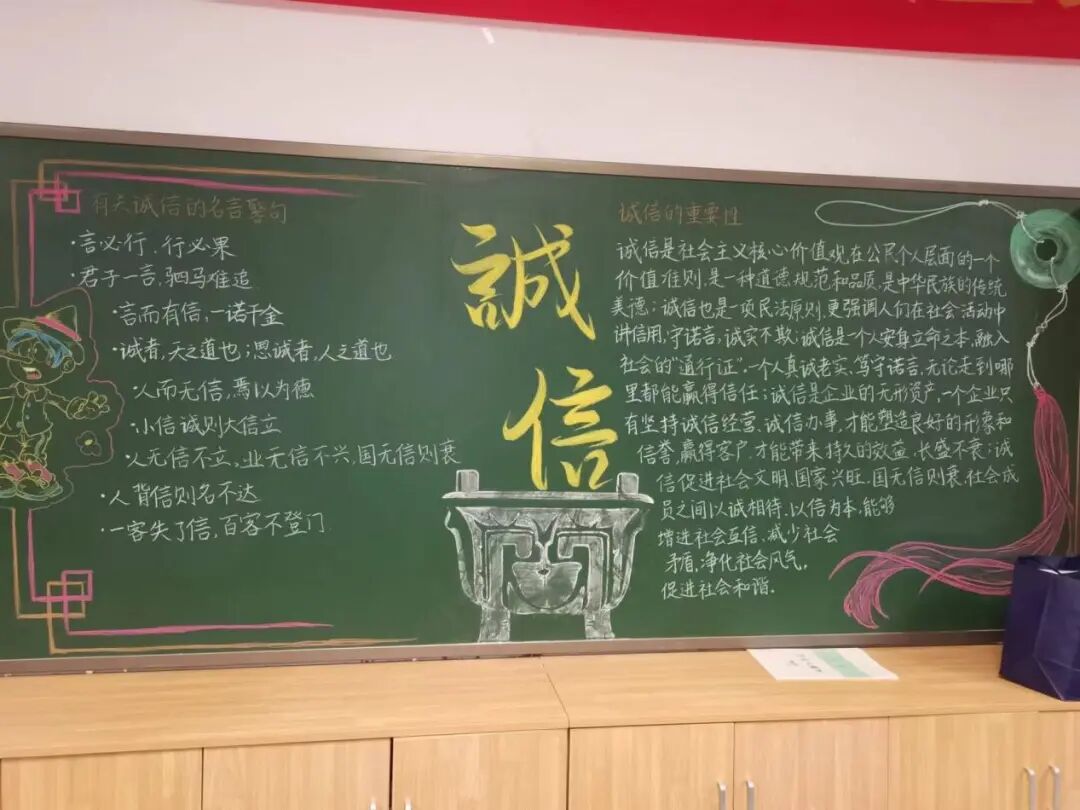 有关诚信的名言警句
·言必行，行必果
·君子一言，驷马难追
·言而有信，一诺千金
·诚者，天之道也；思诚者，人之道也
·人而无信，焉以为德
·小信诚则大信立
·人无信不立，业无信不兴，国无信则衰
·人背信则名不达
·一客失了信，百客不登门
誠
信
诚信的重要性
诚信是社会主义核心价值观在公民个人层面的一个
价值准则，是一种道德规范和品质，是中华民族的传统
美德；诚信也是一项民法原则，更强调人们在社会活动中
讲信用，守诺言，诚实不欺；诚信是个人安身立命之本，融入
社会的“通行证”，一个人真诚老实、笃守诺言，无论走到哪
里都能赢得信任；诚信是企业的无形资产，一个企业只
有坚持诚信经营、诚信办事，才能塑造良好的形象和
信誉，赢得客户，才能带来持久的效益，长盛不衰；诚
信促进社会文明、国家兴旺，国无信则衰，社会成
员之间以诚相待、以信为本，能够
增进社会互信、减少社会
矛盾，净化社会风气，
促进社会和谐.